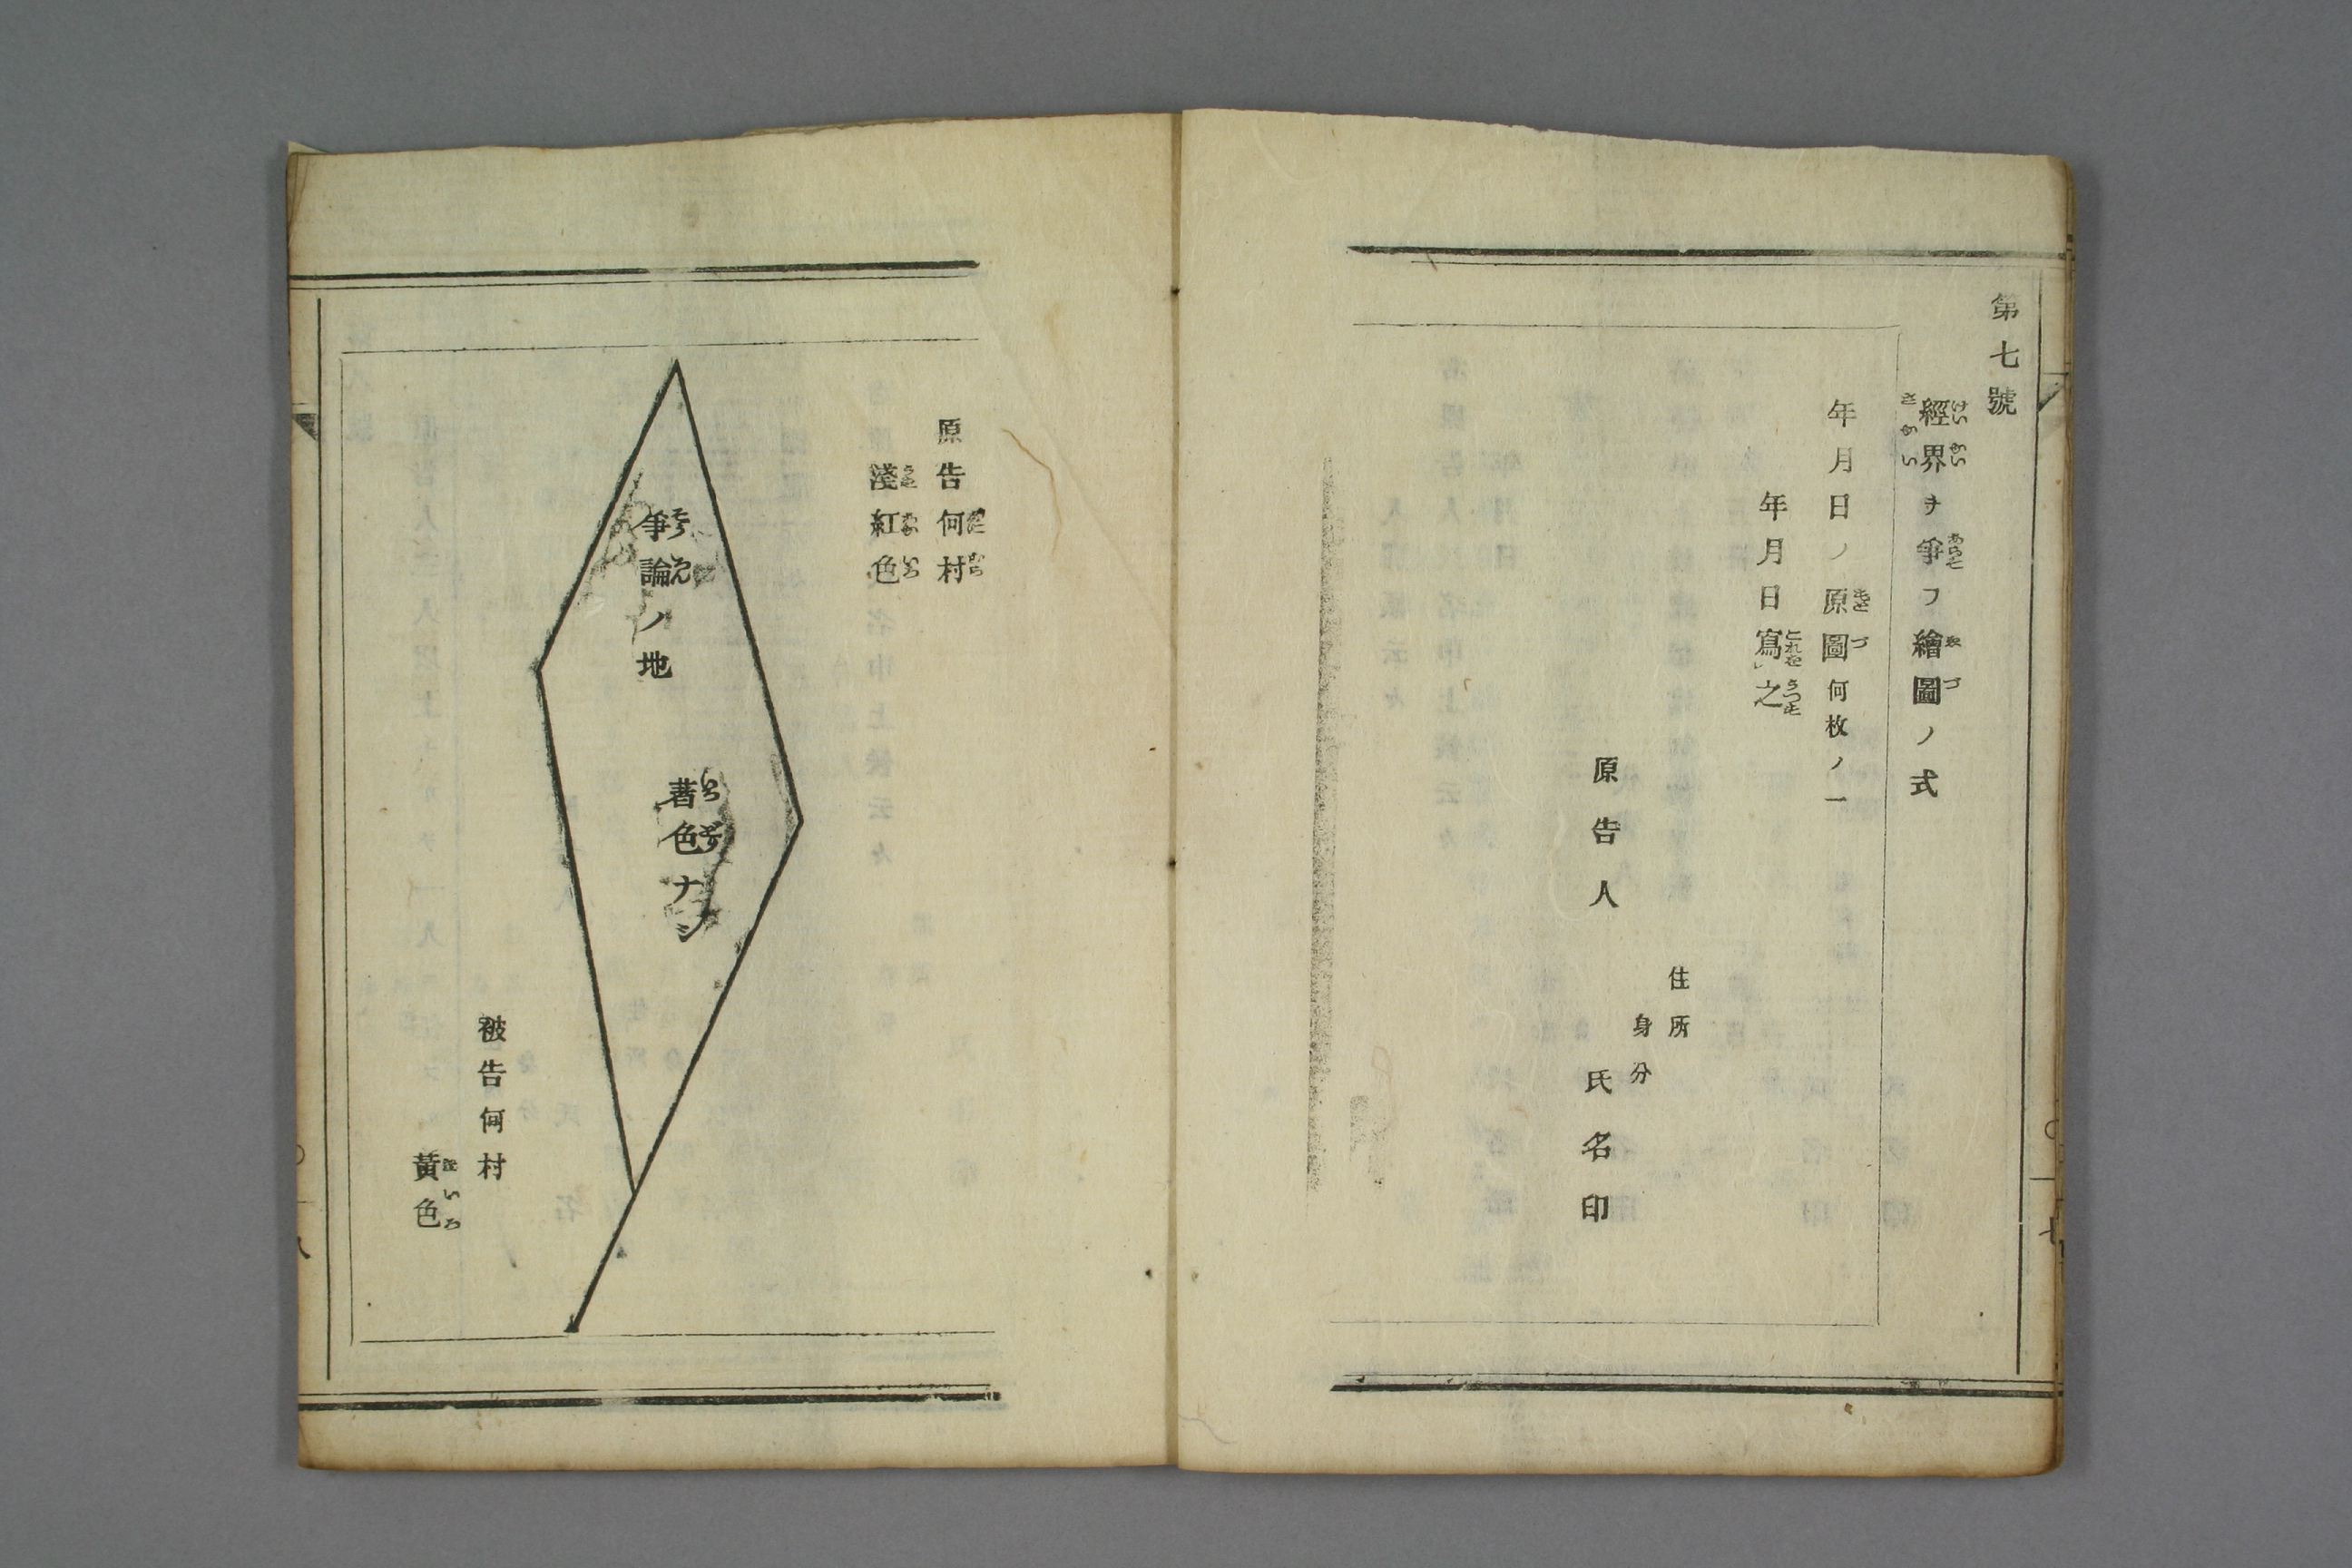 第七號
經界ヲ爭フ繪圖ノ式
年月日ノ原圖何枚ノ一
年月日寫レ之
原告人
住所
身分
氏名印
原告何村
淺紅色
爭論ノ地
著色ナシ
被告何村
黃色